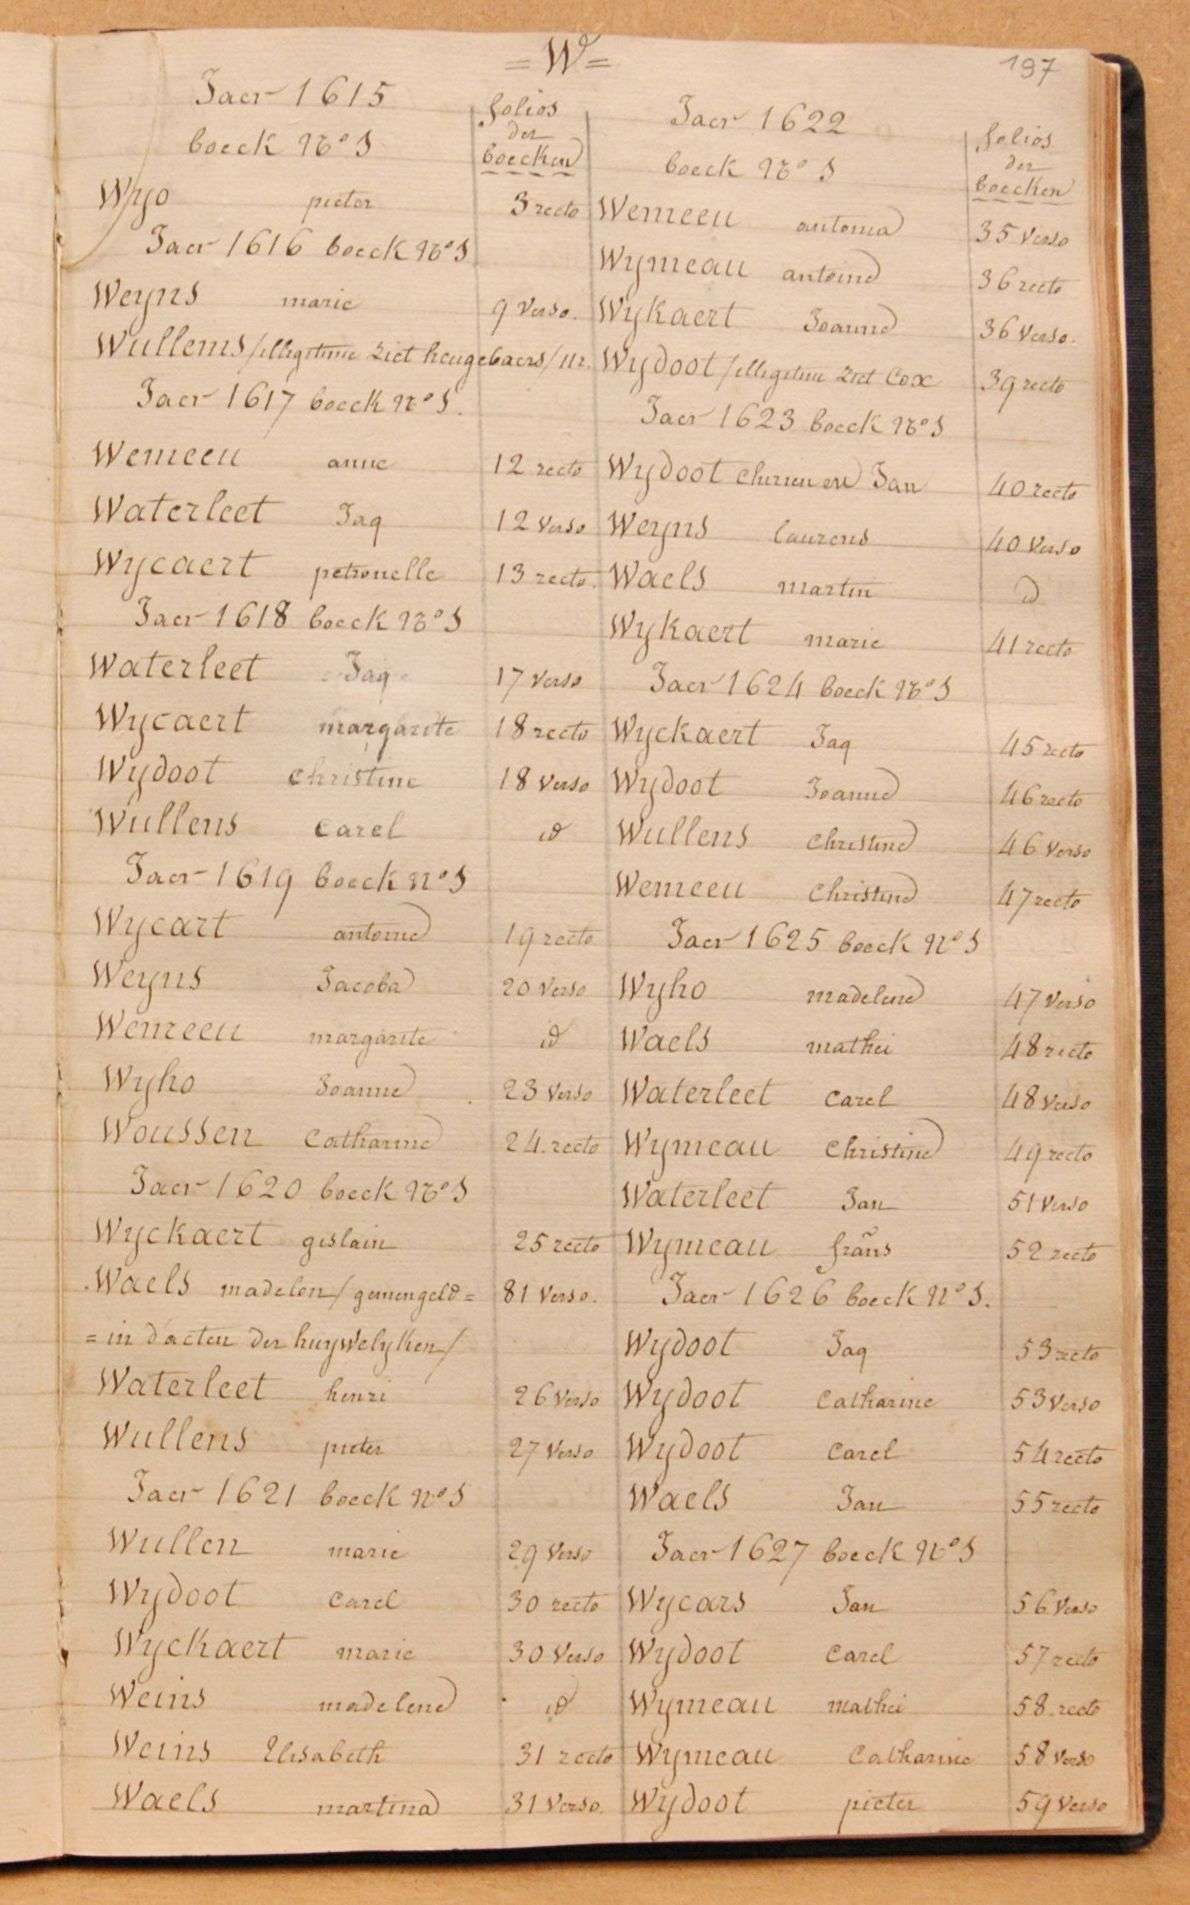 = W =
197
Jaer 1615
boeck No 5
folios
der
boecken
Wyo pieter 3 recto
Jaer 1616 boeck No 5
Weyns marie 9 verso.
Wullems /illegitime ziet heugebaers/ nr.
Jaer 1617 boeck No 5.
Wemeeu anne 12 recto
Waterleet Jaq 12 verso
Wycaert petronelle 13 recto.
Jaer 1618 boeck No 5
Waterleet Jaq 17 verso
Wycaert margarite 18 recto
Wydoot christine 18 verso
Wullens carel id
Jaer 1619 boeck No 5
Wycart antoine 19 recto
Weyns Jacoba 20 verso
Wemeeu margarite id
Wyho Joanne 23 verso
Woussen catharine 24 recto
Jaer 1620 boeck No 5
Wyckaert gislain 25 recto
Waels madelen / gemengeld = 81 verso.
= in d'acten der huywelyken /
Waterleet henri 26 verso
Wullens pieter 27 verso
Jaer 1621 boeck No 5
Wullen marie 29 verso
Wydoot carel 30 recto
Wyckaert marie 30 verso
Weins madelene id
Weins Elisabeth 31 recto
Waels martina 31 verso.
Jaer 1622
boeck No 5
folios
der
boecken
Wemeeu antonia 35 verso
Wymeau antoine 36 recto
Wykaert Joanne 36 verso.
Wydoot /illegitim ziet Cox 39 recto
Jaer 1623 boeck No 5
Wydoot en Jan 40 recto
Weyns laurens 40 verso
Waels martin id
Wykaert marie 41 recto
Jaer 1624 boeck No 5
Wyckaert Jaq 45 recto
Wydoot Joanne 46 recto
Wullens christine 46 verso
Wemeeu christine 47 recto
Jaer 1625 boeck No 5
Wyho madelene 47 verso
Waels mathei 48 recto
Waterleet carel 48 verso
Wymeau christine 49 recto
Waterleet Jan 51 verso
Wymeau frans 52 recto
Jaer 1626 boeck No 5.
Wydoot Jaq 53 recto
Wydoot catharine 53 verso
Wydoot carel 54 recto
Waels Jan 55 recto
Jaer 1627 boeck No 5
Wycars Jan 56 verso
Wydoot carel 57 recto
Wymeau mathei 58 recto
Wymeau catharine 58 verso
Wydoot pieter 59 verso